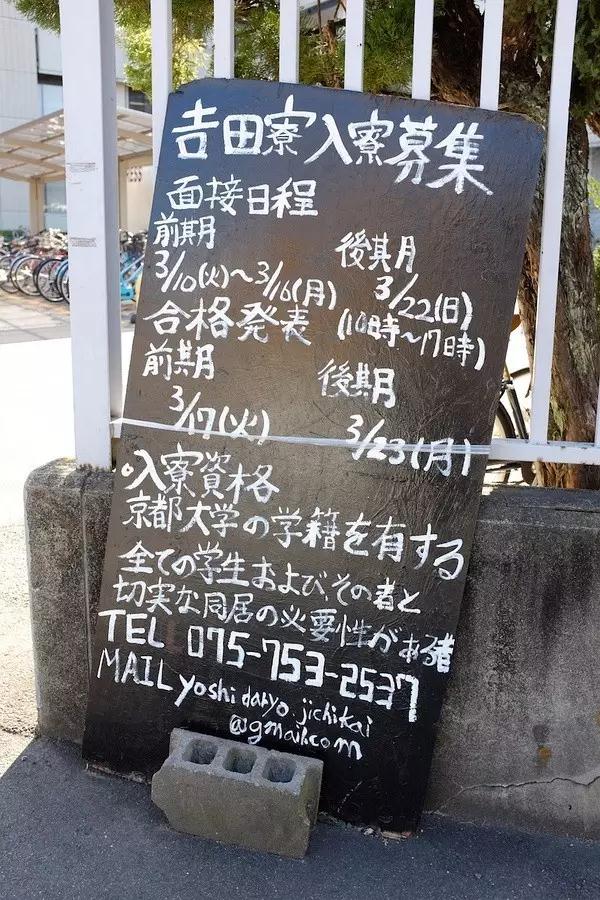 𠮷田寮入寮募集
面接日程
前期
3/10(火)～3/16(月)
後期月
3/22(日)
(10時～17時)
合格発表
前期
3/17(火)
後期
3/23(月)
入寮資格
京都大学の学籍を有する
全ての学生および、その者と
切実な同居の必要性がある者
TEL 075-753-2537
MAIL yoshidaryo.jichikai
@gmail.com